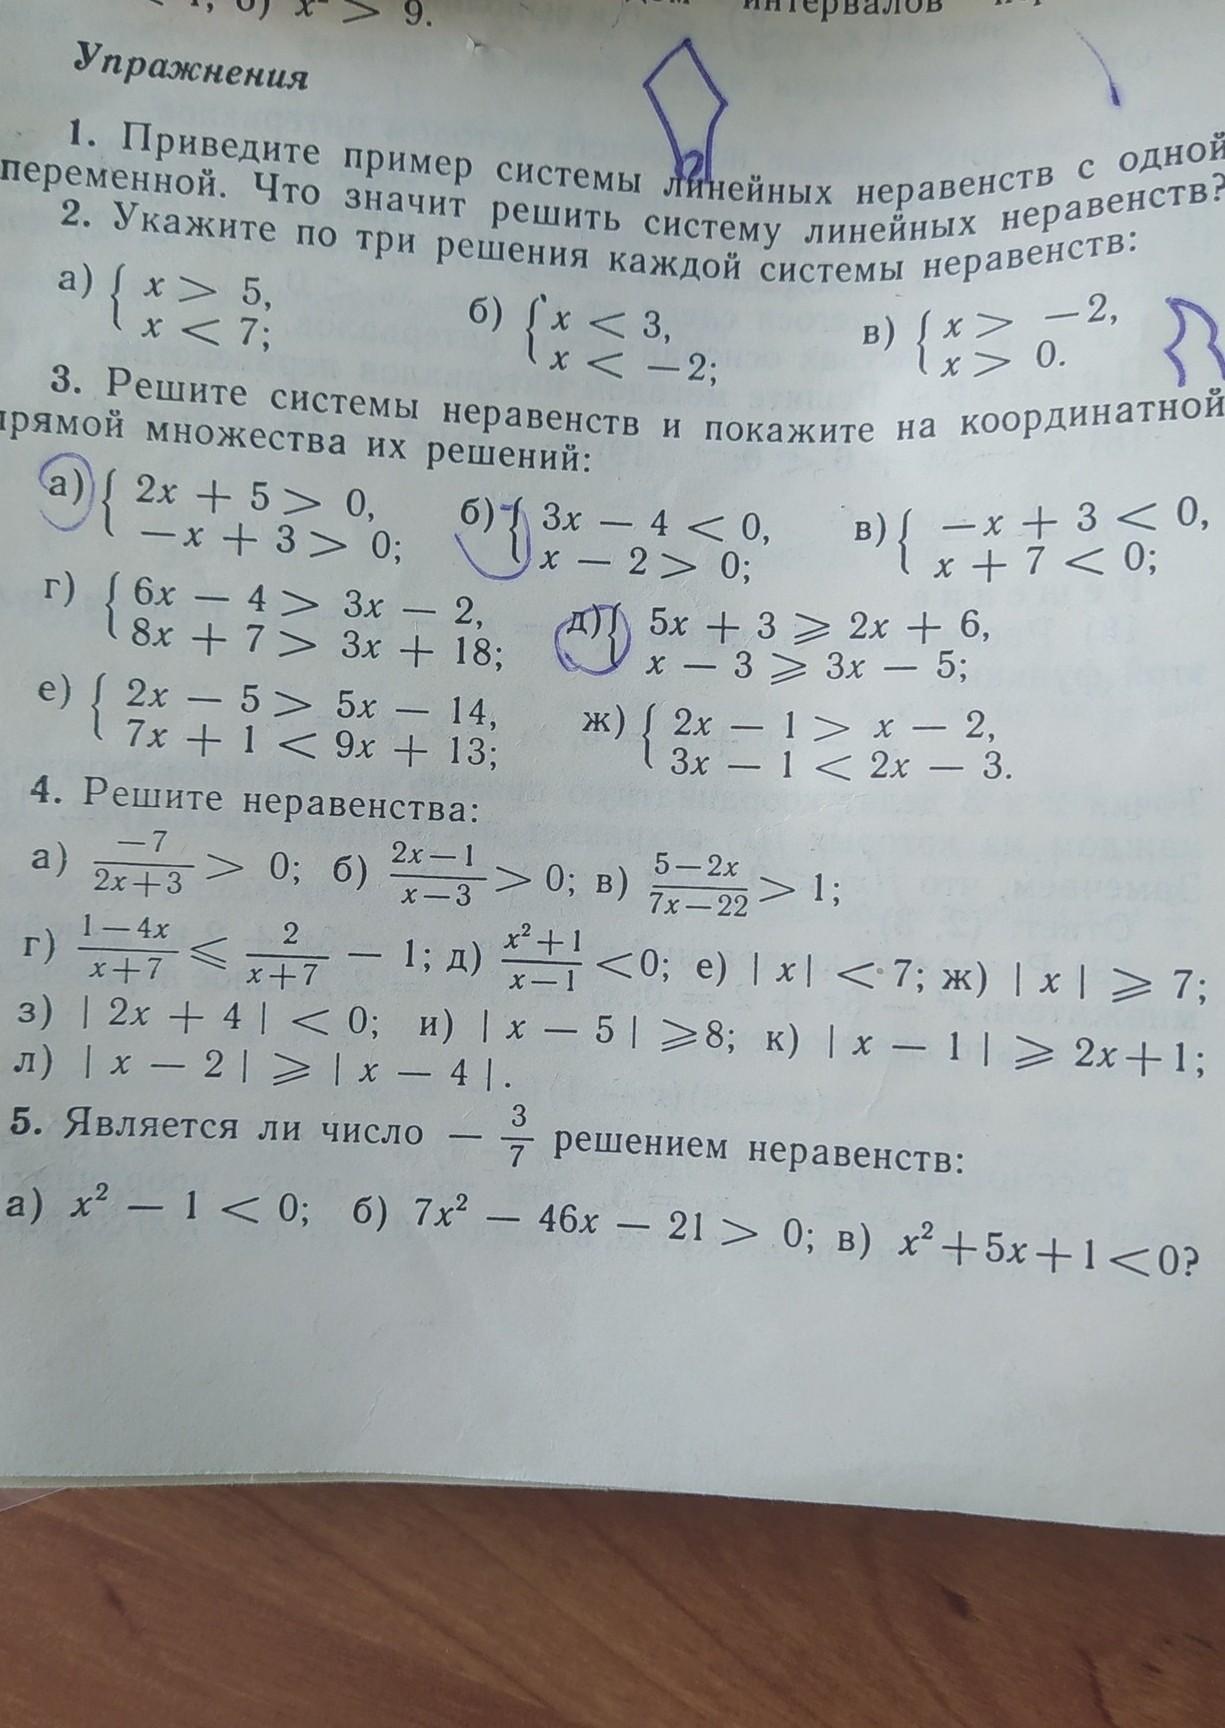 x² > 9.
интервалов
Упражнения
1. Приведите пример системы линейных неравенств с одной
переменной. Что значит решить систему линейных неравенств?
2. Укажите по три решения каждой системы неравенств:
а) { x > 5, x < 7; б) { x < 3, x < −2; в) { x > −2, x > 0.
3. Решите системы неравенств и покажите на координатной
прямой множества их решений:
а) { 2x + 5 > 0, −x + 3 > 0; б) { 3x − 4 < 0, x − 2 > 0; в) { −x + 3 < 0, x + 7 < 0;
г) { 6x − 4 > 3x − 2, 8x + 7 > 3x + 18; д) { 5x + 3 ⩾ 2x + 6, x − 3 ⩾ 3x − 5;
е) { 2x − 5 > 5x − 14, 7x + 1 < 9x + 13; ж) { 2x − 1 > x − 2, 3x − 1 < 2x − 3.
4. Решите неравенства:
а) −7/(2x+3) > 0; б) (2x−1)/(x−3) > 0; в) (5−2x)/(7x−22) > 1;
г) (1−4x)/(x+7) ⩽ 2/(x+7) − 1; д) (x²+1)/(x−1) < 0; е) | x | < 7; ж) | x | ⩾ 7;
з) | 2x + 4 | < 0; и) | x − 5 | ⩾ 8; к) | x − 1 | ⩾ 2x+1;
л) | x − 2 | ⩾ | x − 4 |.
5. Является ли число − 3/7 решением неравенств:
а) x² − 1 < 0; б) 7x² − 46x − 21 > 0; в) x²+5x+1<0?